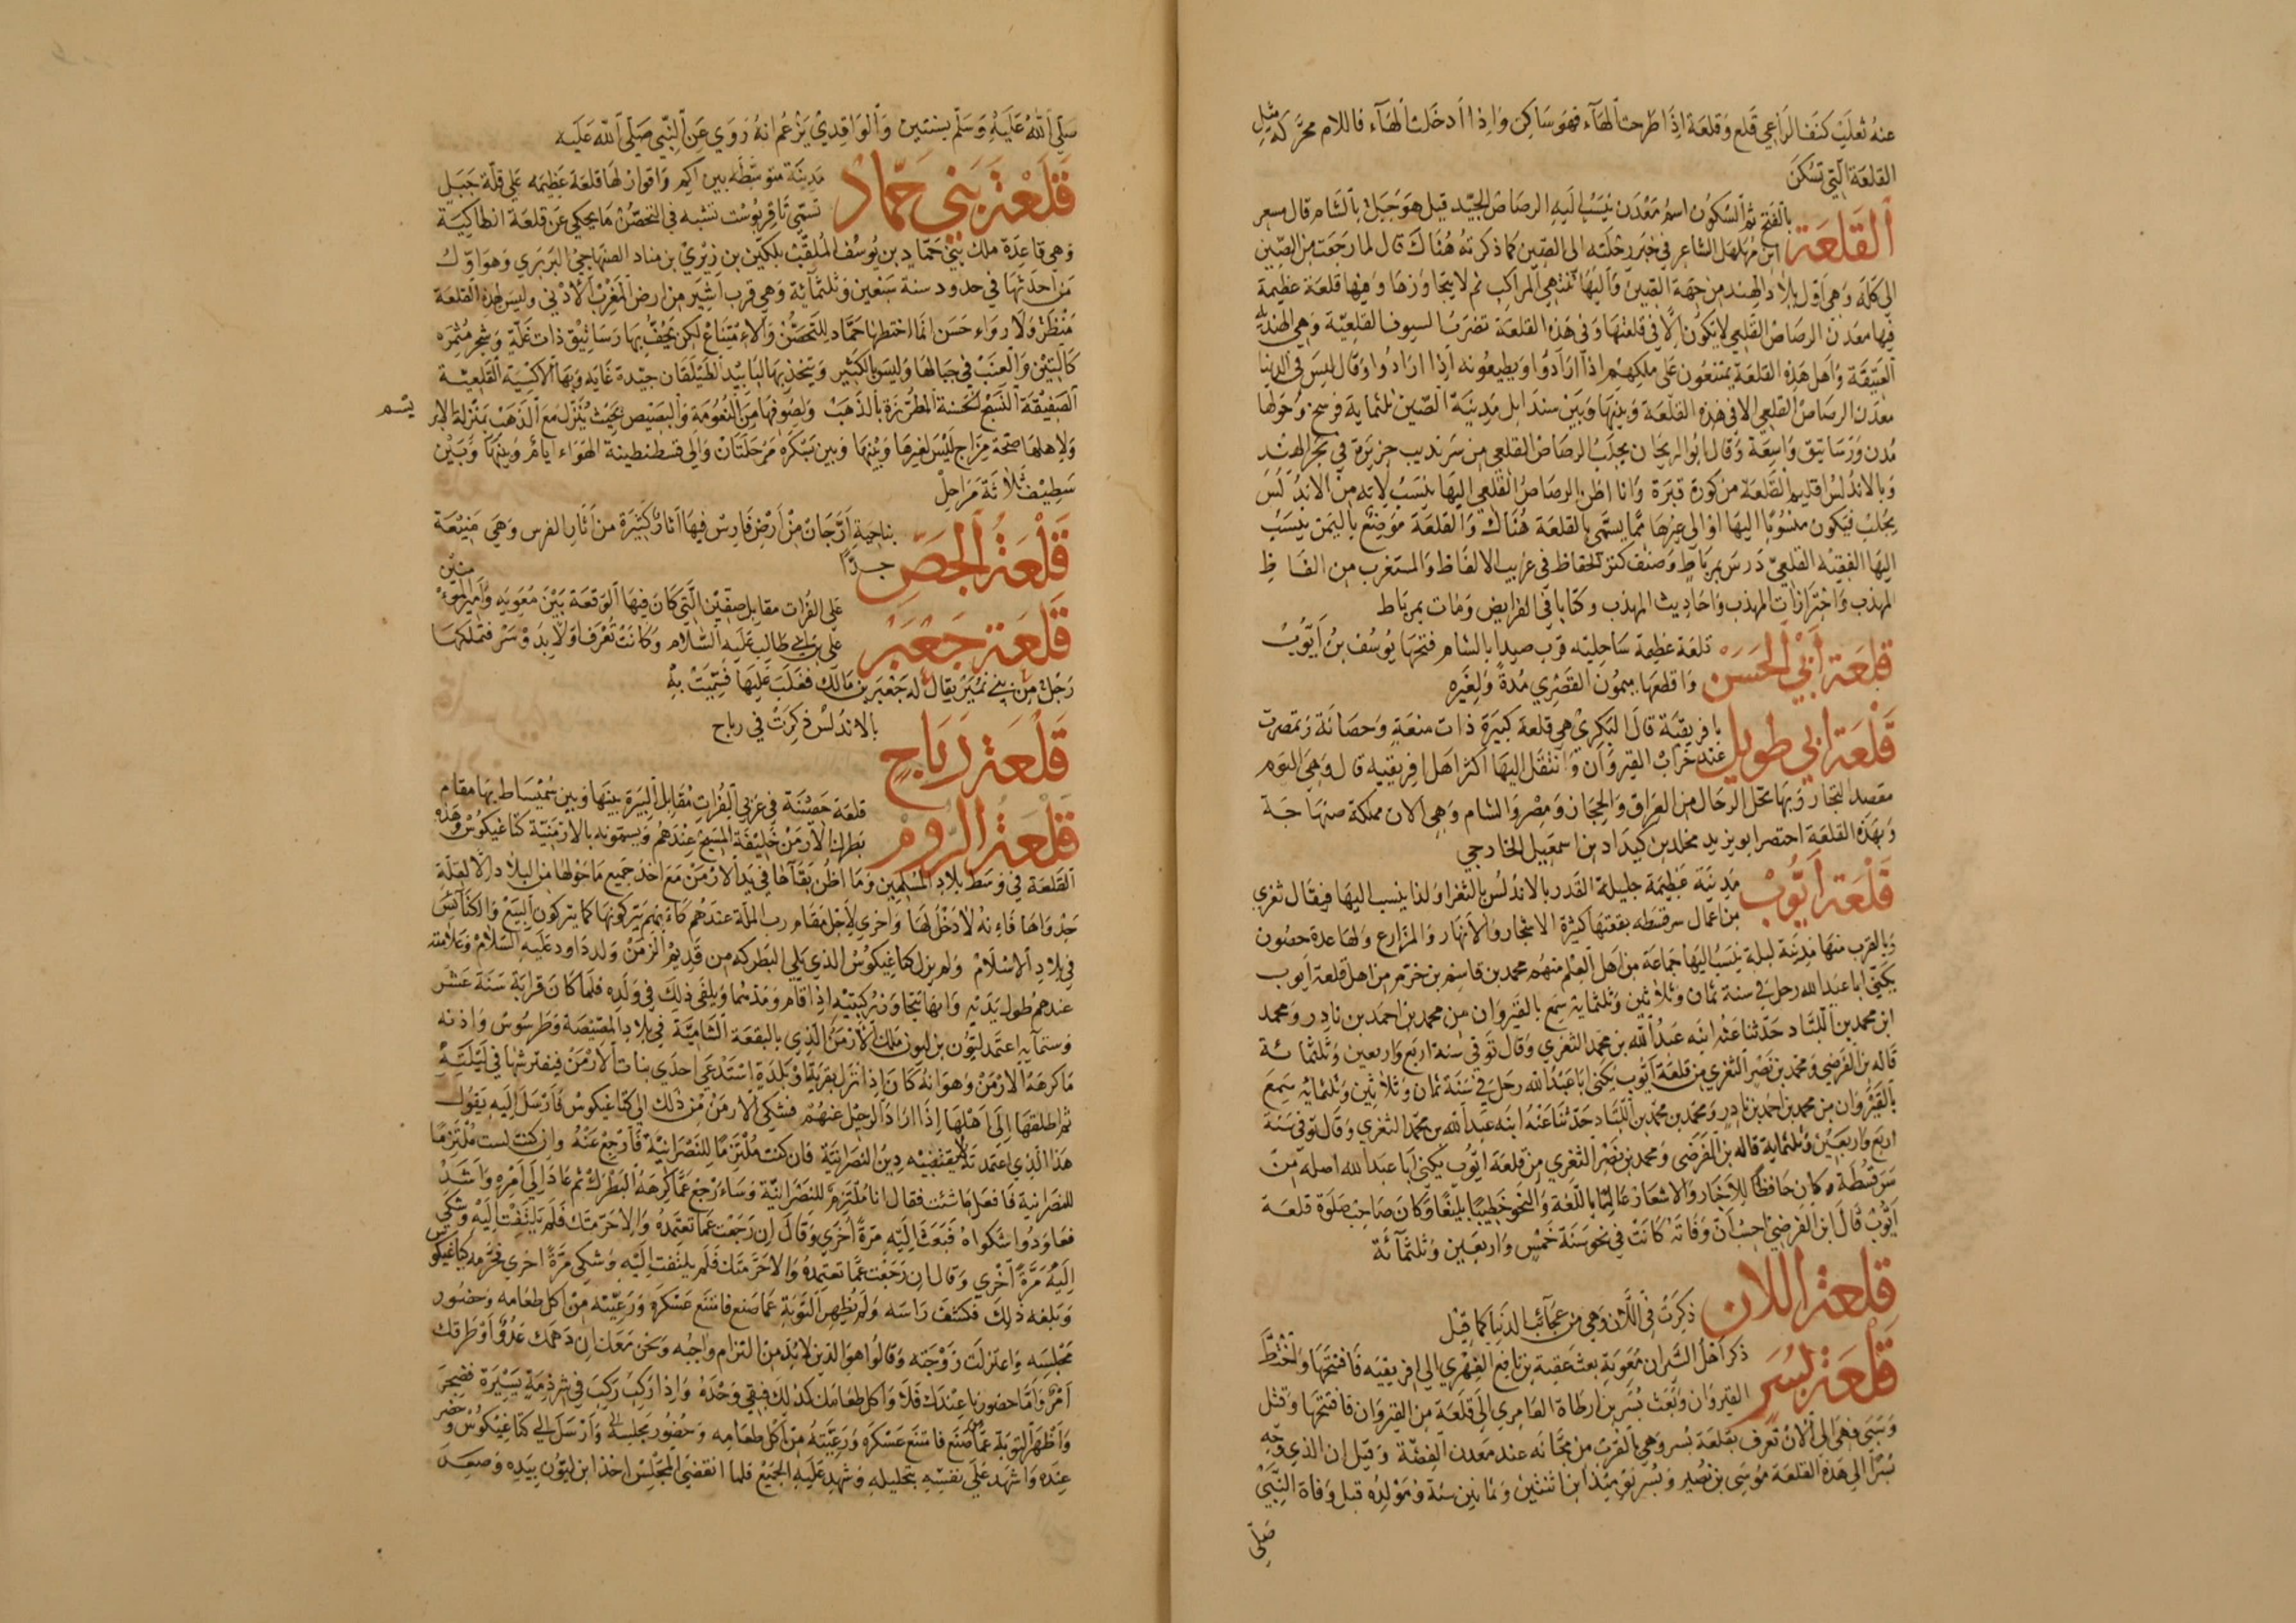 عنه ثعلب كنف الراعي قلع وقلعة اذا طرحت الهاء فهو ساكن واذا ادخلت الهاء فاللام محركة مثل
القلعة التي تسكن
القلعة بالفتح ثم السكون اسم معدن ينسب اليه الرصاص الجيد قيل هو جبل بالشام قال مسعر
ابن مهلهل الشاعر في خبر رحلته الى الصين كما ذكرته هناك قال لما رجعت من الصين
الى كله وهي اول بلاد الهند من جهة الصين واليها تنتهي المراكب ثم لا يتجاوزها وفيها قلعة عظيمة
فيها معدن الرصاص القلعي لا يكون الا في قلعتها وفي هذه القلعة تضرب السيوف القلعية وهي الهندية
العتيقة واهل هذه القلعة يمتنعون على ملكهم اذا ارادوا ويطيعونه اذا ارادوا وقال ليس في الدنيا
معدن الرصاص القلعي الا في هذه القلعة وبينها وبين سندابل مدينة الصين ثلثماية فرسخ وحولها
مدن ورساتيق واسعة وقال ابو الريحان يجلب الرصاص القلعي من سرنديب جزيرة في بحر الهند
وبالاندلس اقليم القلعة من كورة قبرة وانا اظن الرصاص القلعي اليها ينسب لانه من الاندلس
يجلب فيكون منسوبا اليها او الى غيرها مما يسمى بالقلعة هناك والقلعة موضع باليمن ينسب
اليها الفقيه القلعي درس بمرباط وصنف كنز الحفاظ في غريب الالفاظ والمستغرب من الفاظ
المهذب واحترازات المهذب واحاديث المهذب وكتابا في الفرايض ومات بمرباط
قلعة أبي الحسن قلعة عظيمة ساحلية قرب صيدا بالشام فتحها يوسف بن أيوب
واقطعها ميمون القصري مدة ولغيره
قلعة ابي طويل بافريقية قال البكري هي قلعة كبيرة ذات منعة وحصانة وتمصرت
عند خراب القيروان وانتقل اليها اكثر اهل افريقية قال وهي اليوم
مقصد التجار وبها تحل الرحال من العراق والحجاز ومصر والشام وهي الان مملكة صنهاجة
وبهذه القلعة احتصر ابو يزيد مخلد بن كيداد بن اسمعيل الخارجي
قلعة أيوب مدينة عظيمة جليلة القدر بالاندلس بالثغر ولذا ينسب اليها فيقال ثغري
من اعمال سرقسطه بقعتها كثيرة الاشجار والانهار والمزارع ولها عدة حصون
وبالقرب منها مدينة لبلة ينسب اليها جماعة من اهل العلم منهم محمد بن قاسم بن خرم من اهل قلعة ايوب
يكنى ابا عبد الله رحل في سنة ثمان وثلاثين وثلثماية سمع بالقيروان من محمد بن احمد بن نادر ومحمد
ابن محمد بن اللباد حدثنا عنه ابنه عبد الله بن محمد الثغري وقال توفي سنة اربع واربعين وثلثمائة
قاله بن الفرضي ومحمد بن نصر الثغري من قلعة أيوب يكنى ابا عبد الله رحل في سنة ثمان وثلاثين وثلثمايه سمع
بالقيروان من محمد بن احمد بن نادر ومحمد بن محمد بن اللباد حدثنا عنه ابنه عبد الله بن محمد الثغري وقال توفي سنة
اربع واربعين وثلثماية قاله بن الفرضي ومحمد بن نصر الثغري من قلعة ايوب يكنى أبا عبد الله اصله من
سرقسطة وكان حافظا للاخبار والاشعار عالما باللغة والنحو خطيبا بليغا وكان صاحب صلوة قلعة
أيوب قال ابن الفرضي احسب أن وفاته كانت في نحو سنة خمس واربعين وثلثمائة
قلعة اللان ذكرت في اللان وهي من عجائب الدنيا كما قيل
قلعة بسر ذكر اهل السير ان معوية بعث عقبة بن نافع الفهري الى افريقيه فافتتحها واختط
القيروان وبعث بسر بن ارطاة العامري الى قلعة من القيروان فافتتحها وقتل
وسبى فهي الى الان تعرف بقلعة بسر وهي بالقرب من مجانه عند معدن الفضة وقيل ان الذي وجه
بسرا الى هذه القلعة موسى بن نصير وبسر يومئذ ابن اثنتين وثمانين سنة ومولده قبل وفاة النبي
صلى
صلى الله عليه وسلم بسنتين والواقدي يزعم انه روي عن النبي صلى الله عليه
قلعة بني حماد مدينة متوسطه بين اكم واقران لها قلعة عظيمه على قلة جبل
تسمى تاقربوست تشبه في التحصن ما يحكى عن قلعة انطاكية
وهي قاعدة ملك بني حماد بن يوسف الملقب بلكين بن زيري بن مناد الصنهاجي البربري وهو اول
من احدثها في حدود سنة سبعين وثلثمائة وهي قرب اشير من ارض المغرب الادنى وليس لهذه القلعة
منظر ولا رواء حسن انما اختطها حماد للتحصن والامتناع لكن يحف بها رساتيق ذات غلة وشجر مثمره
كالتين والعنب في جبالها وليس بالكثير ويتخذ بها لبابيد الطيلقان جيدة غايه وبها الاكسية القلعية
الصفيقة النسج الحسنة المطرزة بالذهب ولصوفها من النعومة والبصيص بحيث ينزل مع الذهب بمنزلة الابر
يسم
ولاهلها صحة مزاج ليس لغيرها وبينها وبين بسكره مرحلتان والى قسطنطينة الهواء ايام وبينها وبين
سطيف ثلاثة مراحل
قلعة الجص بناحية أرجان من أرض فارس فيها اثار كثيرة من أثار الفرس وهي منيعة
جدا
قلعة جعبر على الفرات مقابل صفين التي كان فيها الوقعة بين معويه وأمير المؤمنين
على بن ابي طالب عليه السلام وكانت تعرف اولا بدوسر فتملكها
رجل من بني نمير يقال له جعبر بن مالك فغلب عليها فسميت به
قلعة رباح بالاندلس ذكرت في رباح
قلعة الروم قلعة حصينة في غربي الفرات مقابل البيرة بينها وبين سميساط بها مقام
بطرك الارمن خليفة المسيح عندهم ويسمونه بالارمنية كتاغيكوس وهذه
القلعة في وسط بلاد المسلمين وما اظن بقاها في يد الارمن مع اخذ جميع ما حولها من البلاد الا لقلة
جدواها فانه لا دخل لها واخرى لاجل مقام رب الملة عندهم كانهم يتركونها كما يتركون البيع والكنائس
في بلاد الاسلام ولم يزل كتاغيكوس الذي يلي البطركه من قديم الزمن ولد داود عليه السلام وعلامته
عندهم طول يديه وانها تتجاوز ركبتيه اذا قام ومدهما ويلقى ذلك في ولده فلما كان قرابة سنة عشر
وستمايه اعتمد ليون بن ليون ملك الارمن الذي بالبقعة الشامية في بلاد المصيصة وطرسوس واذنه
ما كرهه الارمن وهو انه كان اذا نزل بقرية او بلدة استدعى احدى بنات الارمن فيفترشها في ليلته
ثم اطلقها الى اهلها اذا اراد الرحيل عنهم فشكى الارمن من ذلك الى كتاغيكوس فارسل اليه يقول
هذا الذي اعتمدته لا يقتضيه دين النصرانية فان كنت ملتزما للنصرانية فارجع عنه وان كنت لست ملتزما
للنصرانية فافعل ما شئت فقال انا ملتزم للنصرانية وسارجع عما كرهه البطرك ثم عاد الى امره واشد
فعاودوا شكواه فبعث اليه مرة أخرى وقال ان رجعت عما تعتمده والا حرمتك فلم يلتفت اليه وشكى
اليه مرة أخرى وقال ان رجعت عما تعتمده والا حرمتك فلم يلتفت اليه وشكى مرة اخرى فحرمه كتاغيكوس
وبلغه ذلك فكشف راسه ولم يظهر التوبة عما صنع فامتنع عسكره ورعيته من اكل طعامه وحضور
مجلسه واعتزلت زوجته وقالوا هو الدين لا بد من التزام واجبه ونحن معك ان دهمك عدو أو طرقك
أمر واما حضورنا عندك فلا واكل طعامك كذلك فبقي وحده واذا ركب ركب في شرذمة يسيرة فضجر
واظهر التوبة عما صنع فامتنع عسكره ورعيته من اكل طعامه وحضور مجلسه وأرسل الى كتاغيكوس وحضر
عنده واشهد على نفسه بتحليله وشهد عليه الجميع فلما انقضى المجلس اخذ ابن ليون بيده وصعد